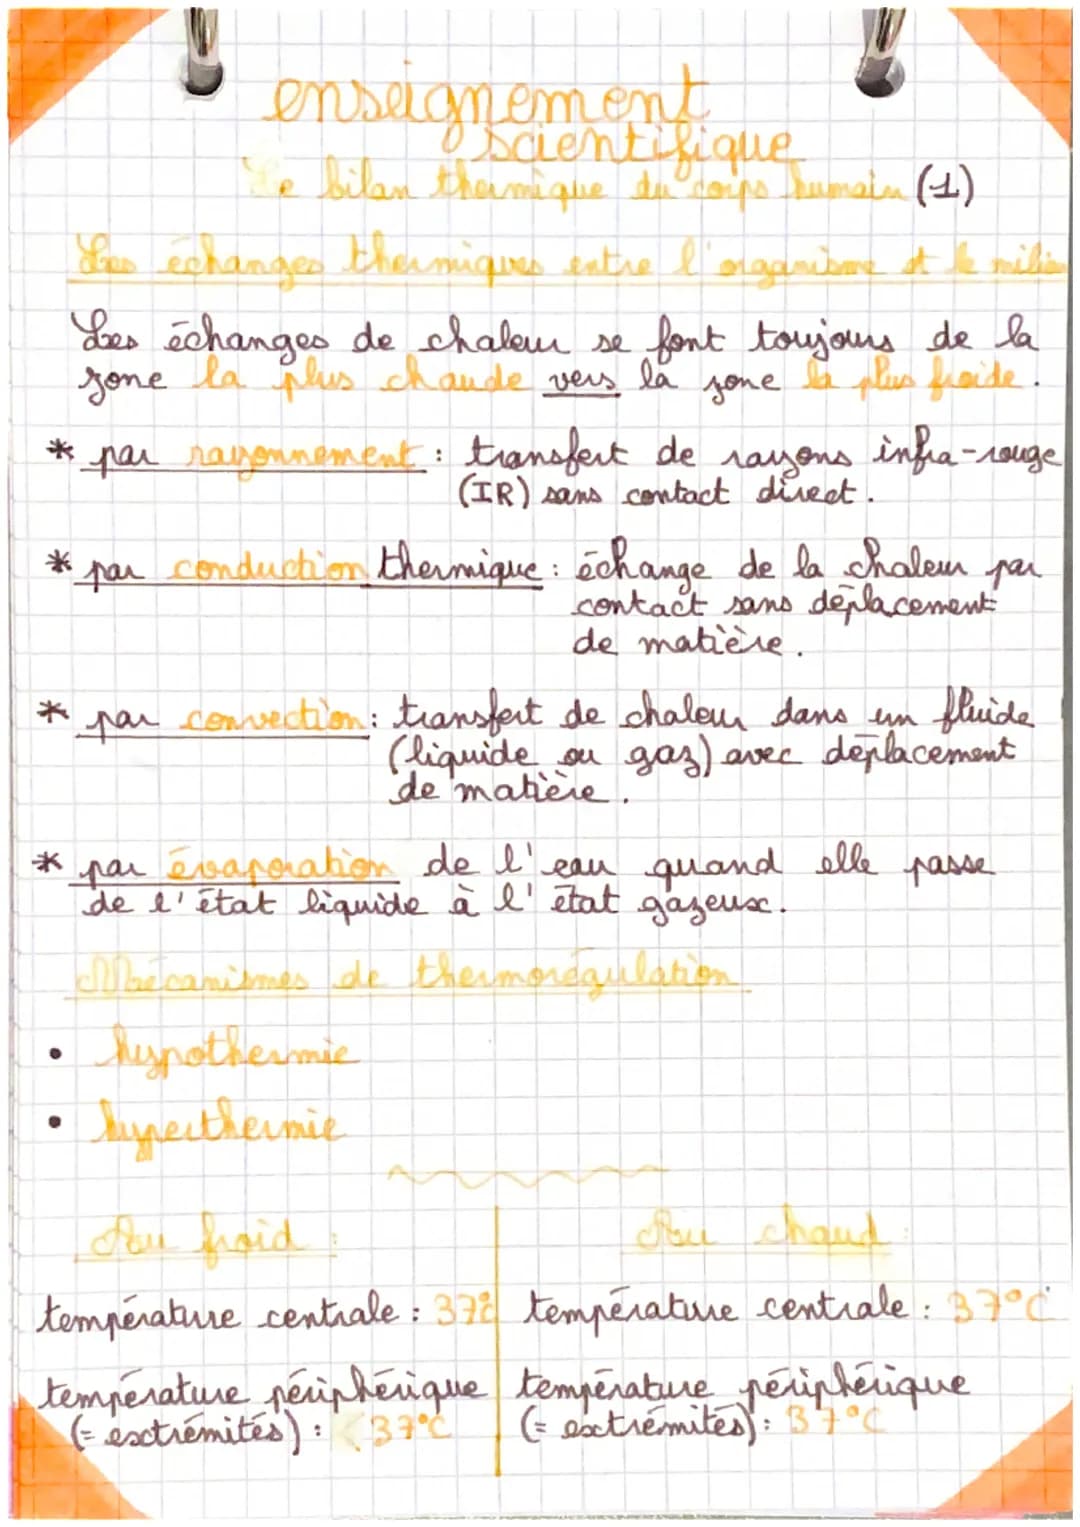 enseignement
scientifique
Le bilan thermique du corps humain (1)
Les échanges thermiques entre l'organisme et le milieu
Les échanges de chaleur se font toujours de la
zone la plus chaude vers la zone la plus froide.
* par rayonnement : transfert de rayons infra-rouge
(IR) sans contact direct.
* par conduction thermique : échange de la chaleur par
contact sans déplacement
de matière.
* par convection : transfert de chaleur dans un fluide
(liquide ou gaz) avec déplacement
de matière.
* par évaporation de l'eau quand elle passe
de l'état liquide à l'état gazeux.
Mécanismes de thermorégulation
• hypothermie
• hyperthermie
Au froid :
température centrale : 37°C
température périphérique
(= extrémités) : < 37°C
Au chaud :
température centrale : 37°C
température périphérique
(= extrémités) : 37°C